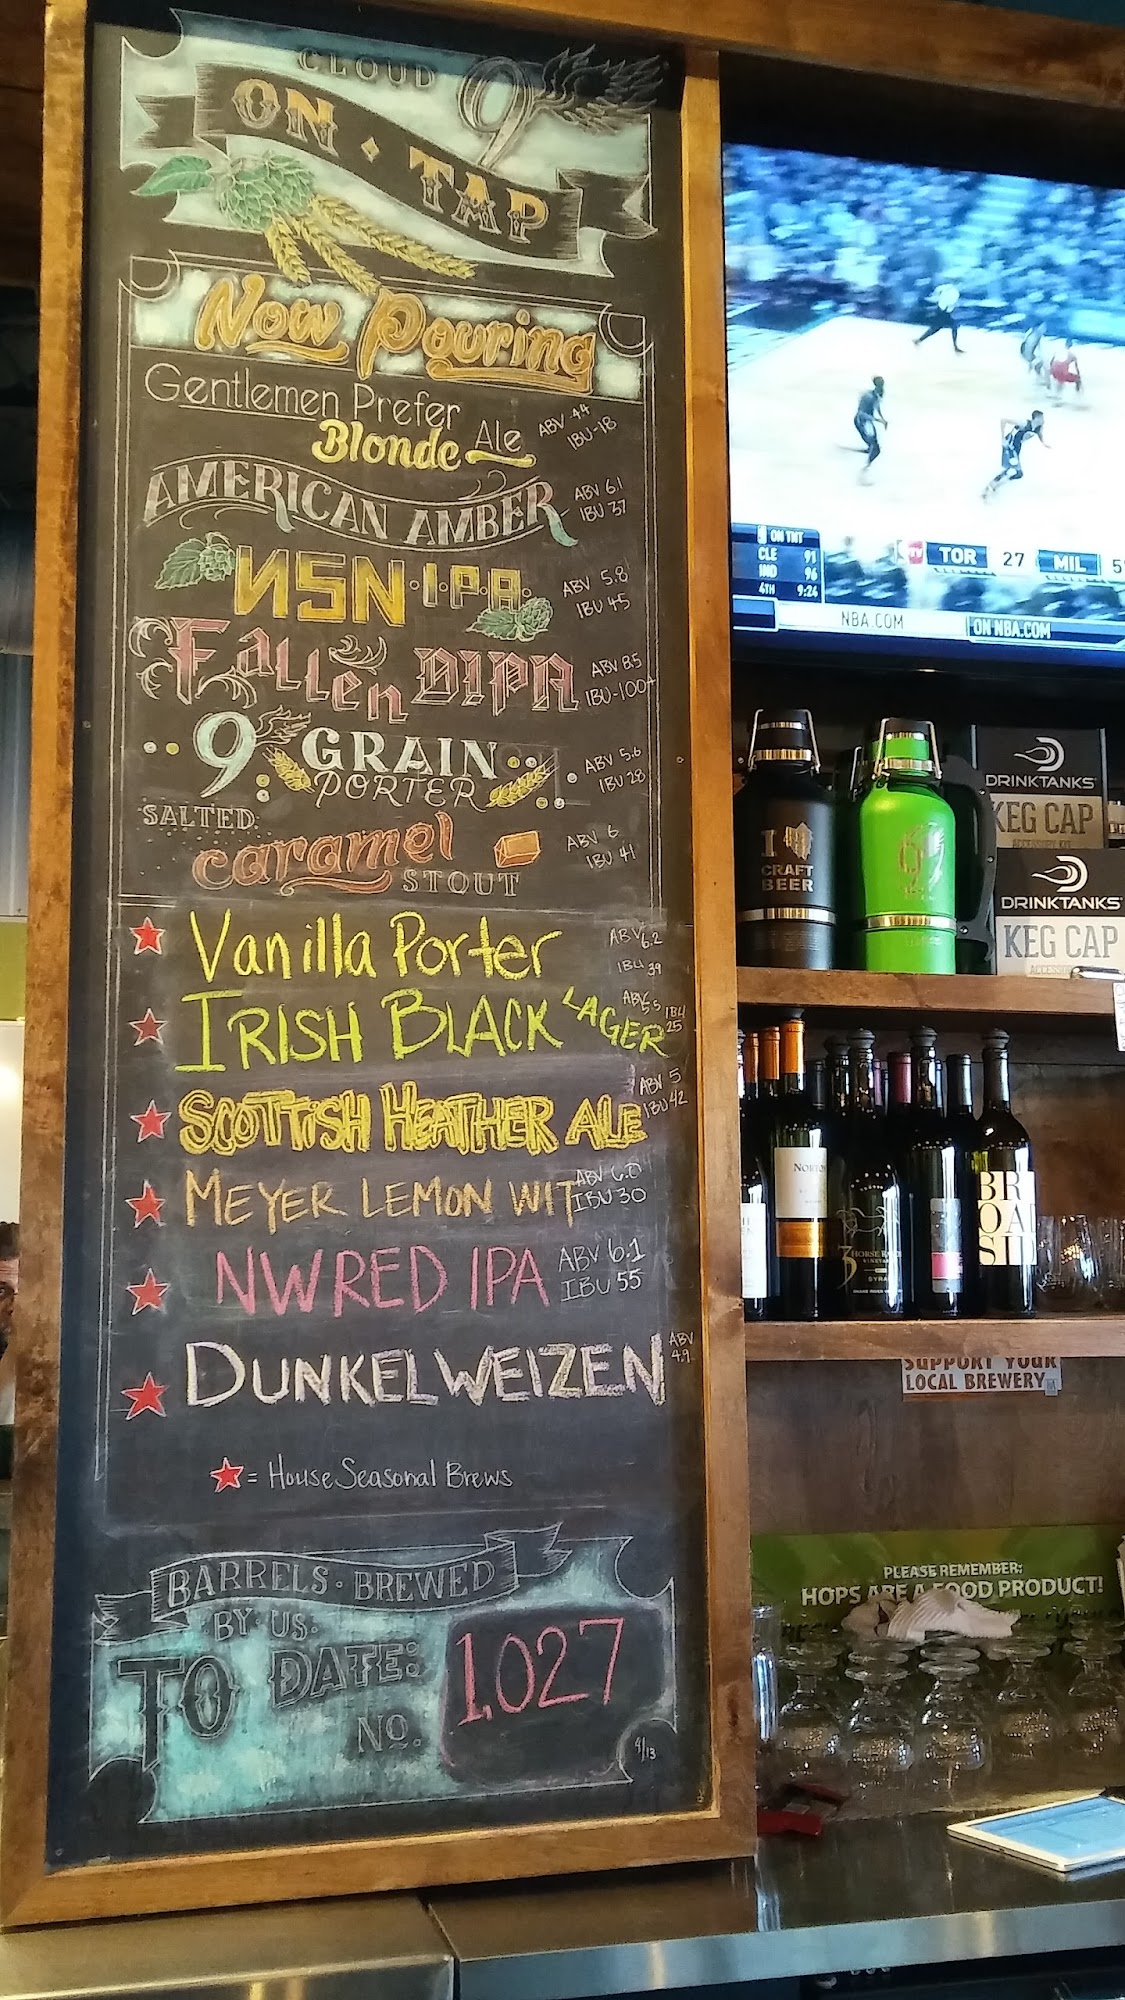 CLOUD 9
ON • TAP
Now Pouring
Gentlemen Prefer
Blonde Ale
ABV-4.4
IBU-18
AMERICAN AMBER
ABV 6.1
IBU 37
NSN•I•P•A•
ABV 5.8
IBU 45
Fallen DIPA
ABV 8.5
IBU-100+
9 GRAIN
PORTER
ABV 5.6
IBU 28
SALTED
caramel
STOUT
ABV 6
IBU 41
Vanilla Porter
ABV 6.2
IBU 39
IRISH BLACK LAGER
ABV 5.5
IBU 25
SCOTTISH HEATHER ALE
ABV 5
IBU 42
MEYER LEMON WIT
ABV 6.0
IBU 30
NW RED IPA
ABV 6.1
IBU 55
DUNKELWEIZEN
ABV 4.9
= House Seasonal Brews
BARRELS • BREWED
BY • US •
TO DATE:
NO.
1,027
4/13
ON TNT
CLE 91
IND 96
4TH 9:24
TOR 27 MIL
NBA.COM
ON NBA.COM
I
CRAFT
BEER
9
DRINKTANKS
KEG CAP
DRINKTANKS
KEG CAP
3 HORSE
SYRA
BR
OA
SID
SUPPORT YOUR
LOCAL BREWERY
PLEASE REMEMBER:
HOPS ARE A FOOD PRODUCT!